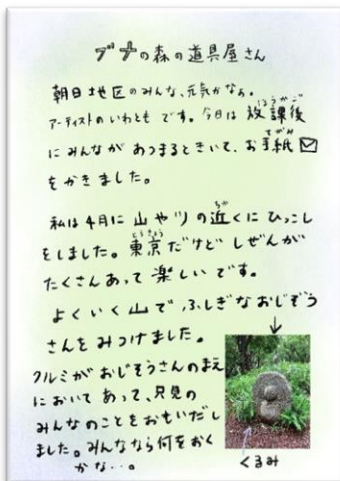 ブナの森の道具屋さん
朝日地区のみんな、元気かなぁ。
アーティストのいわとも です。今日は 放課後
ほうかご
にみんながあつまるときいて、お手紙
てがみ
をかきました。
私は4月に 山や川の近くに ひっこし
ちか
をしました。東京だけど しぜんが
とうきょう
たくさんあって 楽しいです。
よくいく山で、ふしぎなおじぞう
さんをみつけました。
クルミがおじぞうさんのまえ
においてあって、只見の
みんなのことをおもいだし
ました。みんななら何をおく
かな…。
くるみ